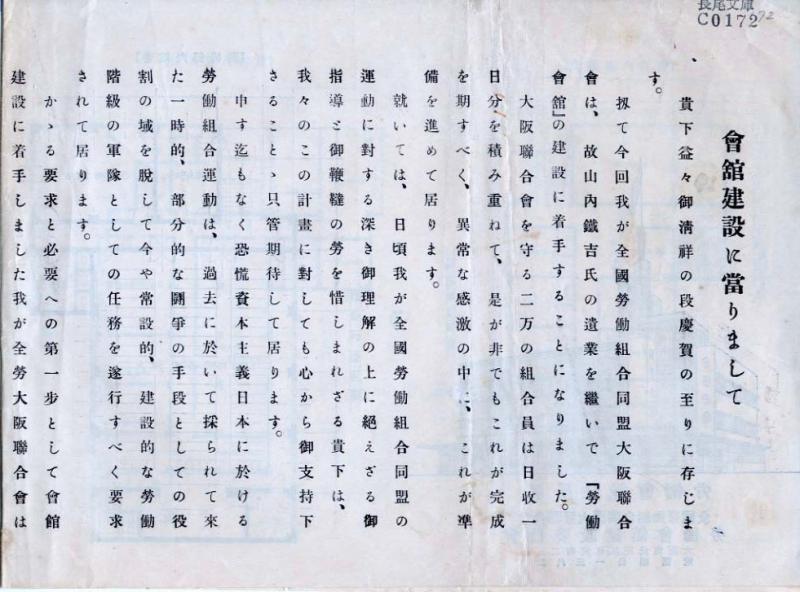 長尾文庫
C0172
72
會舘建設に當りまして
貴下益々御淸祥の段慶賀の至りに存じま
す。
扨て今回我が全國勞働組合同盟大阪聯合
會は、故山內鐵吉氏の遺業を繼いで『勞働
會舘』の建設に着手することになりました。
大阪聯合會を守る二万の組合員は日收一
日分を積み重ねて、是が非でもこれが完成
を期すべく、異常な感激の中に、これが準
備を進めて居ります。
就いては、日頃我が全國勞働組合同盟の
運動に對する深き御理解の上に絕えざる御
指導と御鞭韃の勞を惜しまれざる貴下は、
我々のこの計畫に對しても心から御支持下
さることゝ只管期待して居ります。
申す迄もなく恐慌資本主義日本に於ける
勞働組合運動は、過去に於いて採られて來
た一時的、部分的な鬪爭の手段としての役
割の域を脫して今や常設的、建設的な勞働
階級の軍隊としての任務を遂行すべく要求
されて居ります。
かゝる要求と必要への第一步として會館
建設に着手しました我が全勞大阪聯合會は